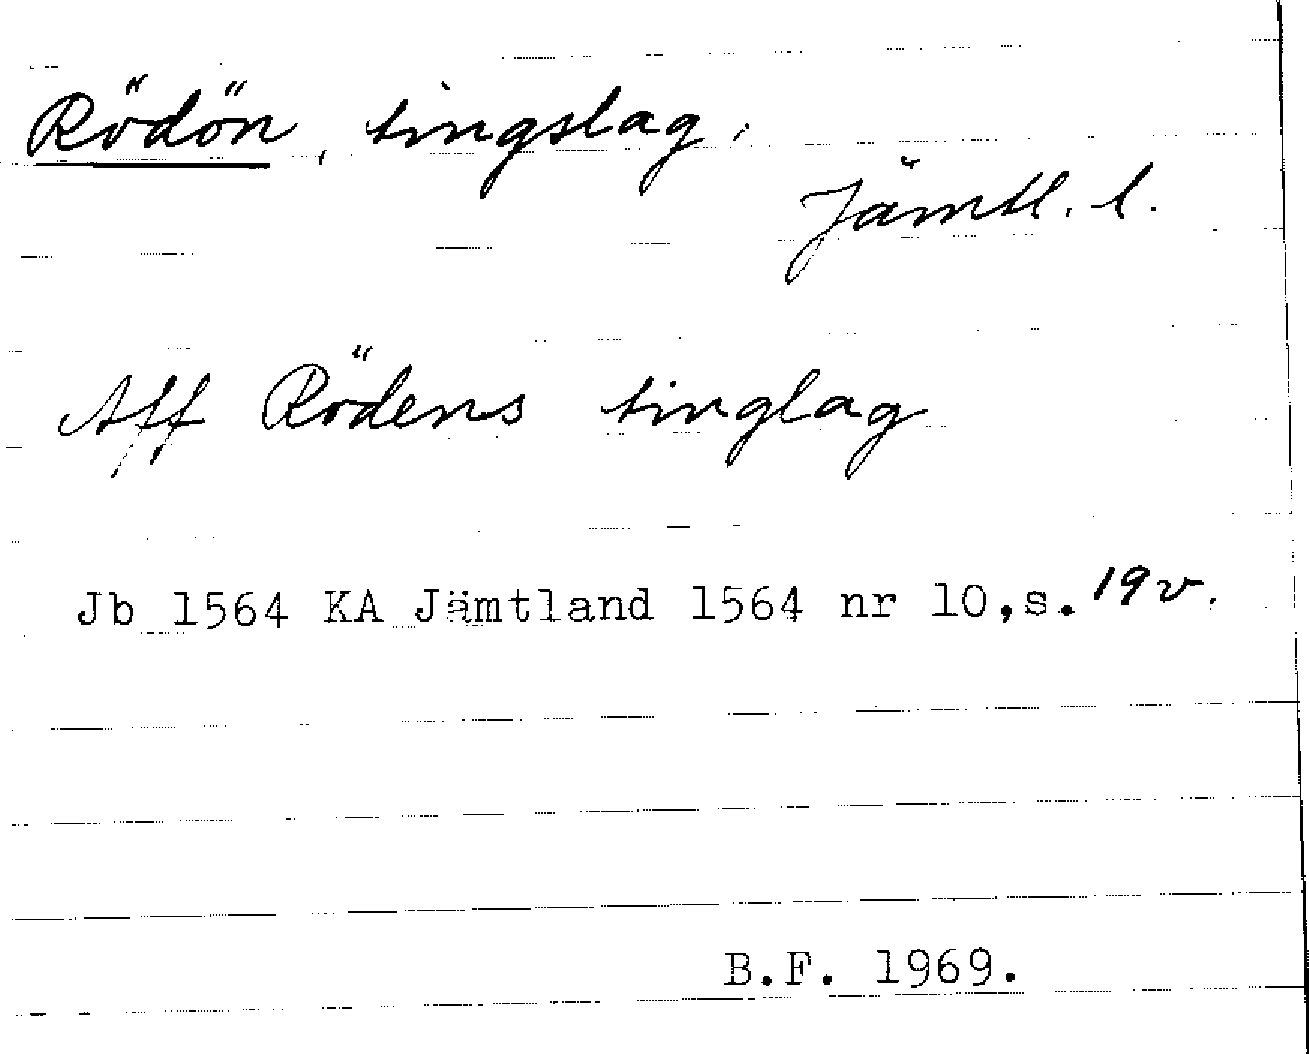 Rödön, tingslag,
Jämtl. l.
Aff Rödens tinglag
Jb 1564 KA Jämtland 1564 nr 10,s. 19 v.
B.F. 1969.